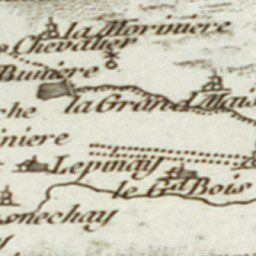 la Moriniere
Chevalier
Buniere
la Grand Mais
che
iniere
Lepinay
le Gd. Bois
onechay